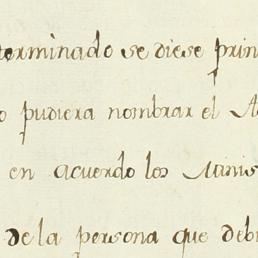 terminado se diese prin
o pudiera nombrar el A
en acuerdo los Minis
de la persona que deb